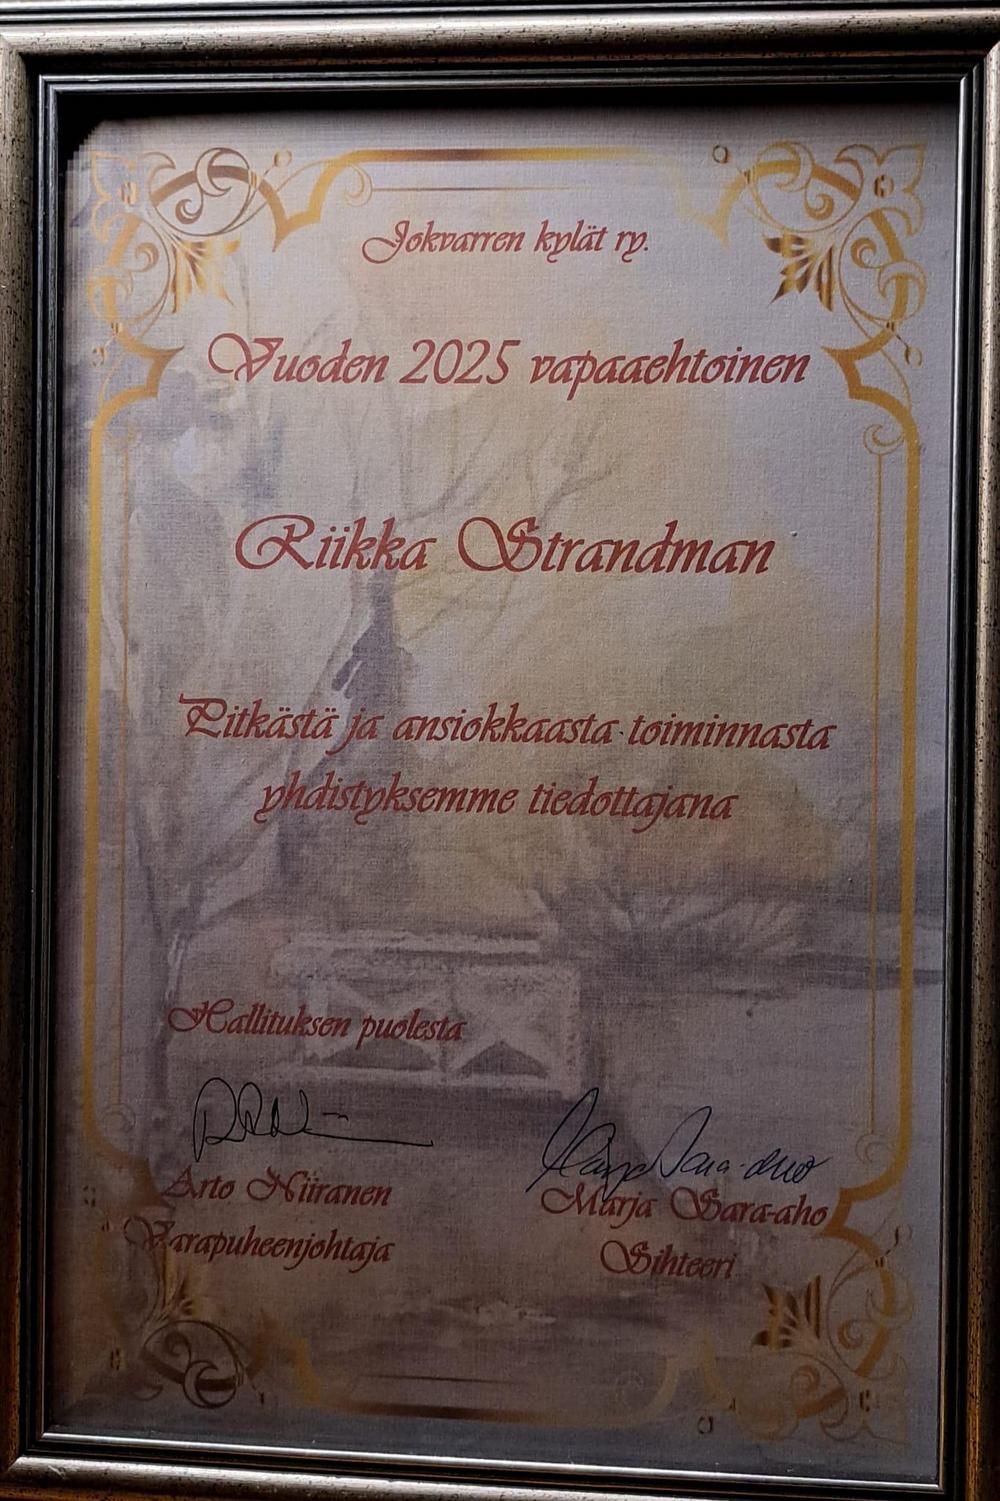 Jokvarren kylät ry.
Vuoden 2025 vapaaehtoinen
Riikka Strandman
Pitkästä ja ansiokkaasta toiminnasta
yhdistyksemme tiedottajana
Hallituksen puolesta
Marja Sara-aho
Arto Niiranen
Marja Sara-aho
Varapuheenjohtaja
Sihteeri